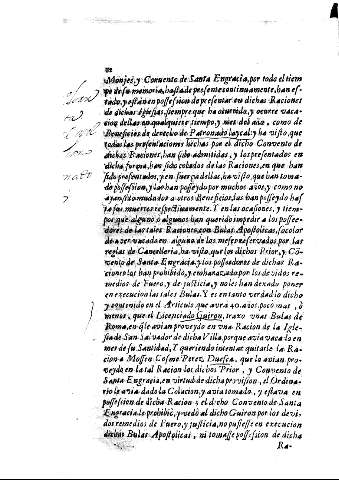 Monjes, y Convento de Santa Engracia, por todo el tiem
po de su memoria, hasta de presente continuamente, han es
tado, y estàn en possession de presentar en dichas Raciones
de dichas Iglesias, siempre que ha ocurrido, y ocurre vaca-
cion dellas en qualquiere tiempo, y mes del año, como de
Beneficios de derecho de Patronado laycal: y ha visto, que
todas las presentaciones hechas por el dicho Convento de
dichas Raciones, han sido admitidas, y los presentados en
dicha forma, han sido colados de las Raciones, en que han
sido presentados, y en fuerça dellas, ha visto, que han toma-
do possession, y las han posseydo por muchos años, y como no
ayan sido mudados a otros Beneficios, las han posseydo has
ta sus muertes respectivamente. Y en las ocasiones, y tiem-
pos que alguno ò algunos han querido impedir a los possee-
dores de las tales Raciones con Bulas Apostolicas, so color
de aver vacado en alguno de los meses reservados por las
reglas de Cancelleria, ha visto, que los dichos Prior, y Cō-
vento de Santa Engracia, y los possadores de dichas Ra-
ciones los han prohibido, y embaraçado por los devidos re-
medios de Fuero, y de justicia, y no les han dexado poner
en execucion las tales Bulas. Y es en tanto verdad lo dicho
y contenido en el Articulo, que avrà 40. años, poco mas, ò
menos, que el Licenciado Guiron, traxo unas Bulas de
Roma, en q̃ le avian proveydo en una Racion de la Igle-
sia de San Salvador de dicha Villa, porque avia vacado en
mes de su Santidad, Y queriendo intentar quitarle la Ra-
cion a Mossen Cosme Perez Duesca, que lo avian pro-
veydo en la tal Racion los dichos Prior, y Convento de
Santa Engracia, en virtud de dicha provision, el Ordina-
rio le avia dado la Colacion, y avia tomado, y estava en
possession de dicha Racion: el dicho Convento de Santa
Engracia lo prohibiò, y vedò al dicho Guiron por los devi-
dos remedios de Fuero, y justicia, no pusiesse en execucion
dichas Bulas Apostolicas, ni tomasse possession de dicha
Ra-